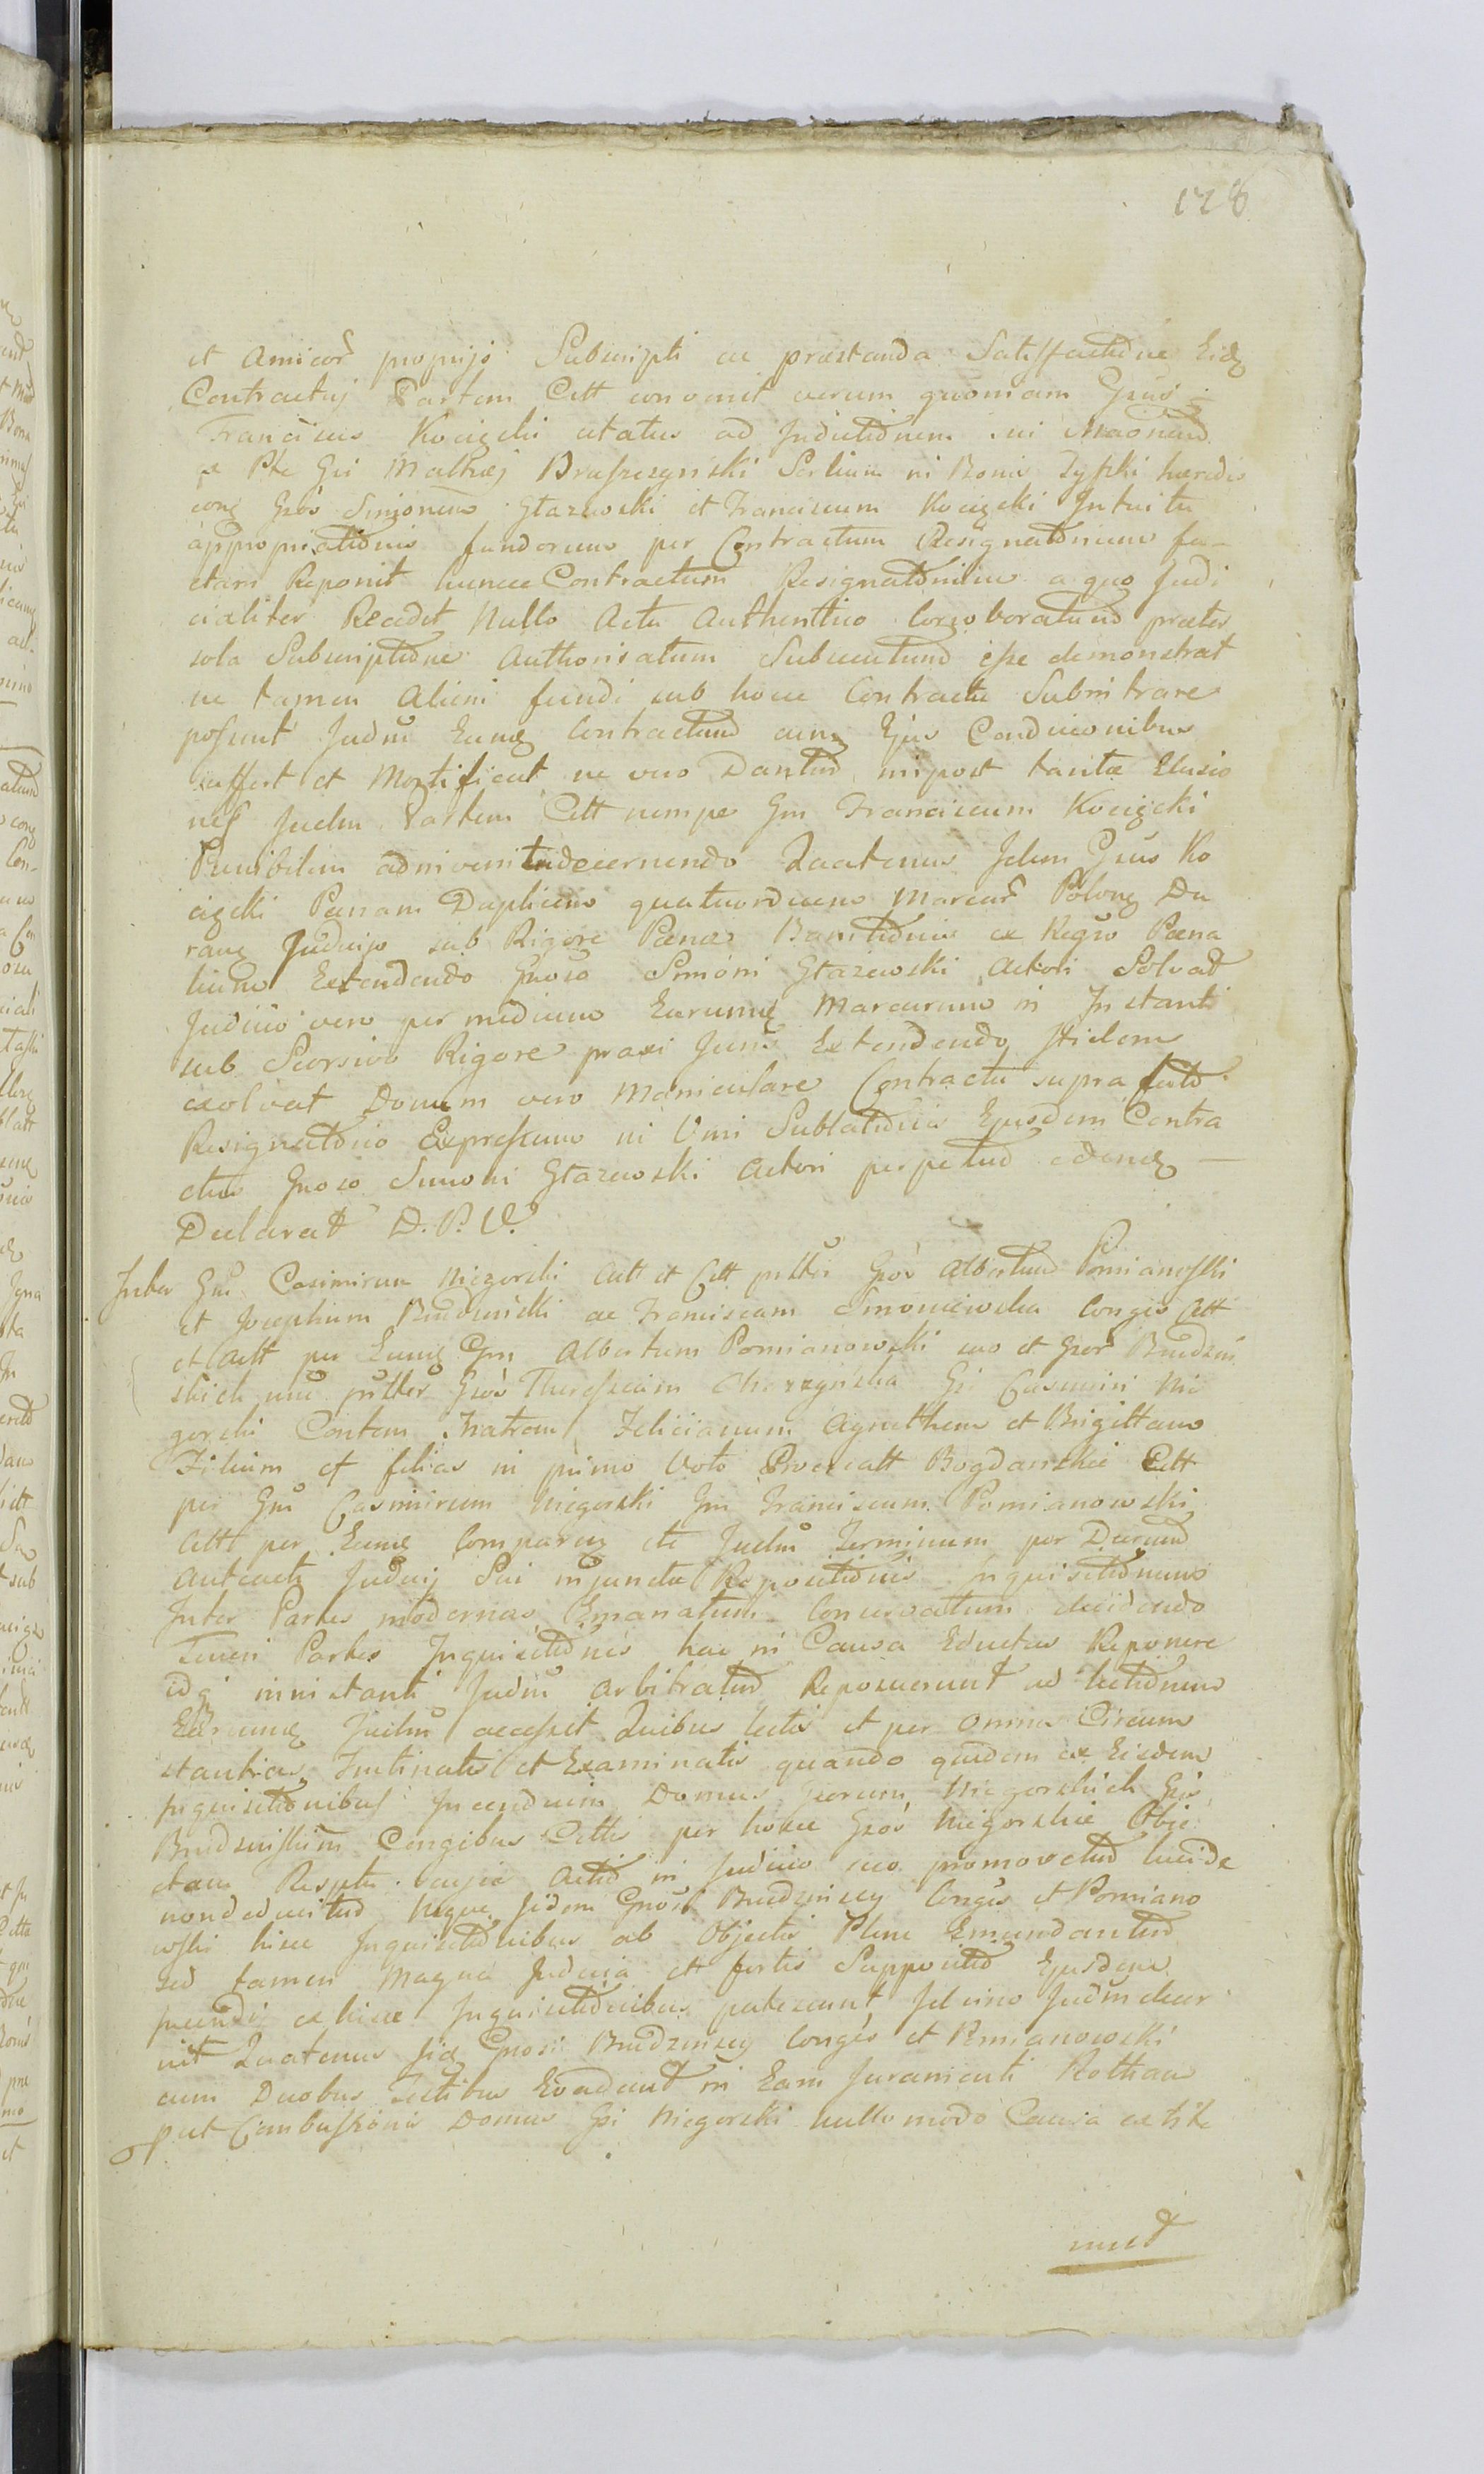 128
et Amicor propriis Subscripti ac praestanda Satisfactione Eidz
Contractui Partem Citt convenit verum quoniam Gsus
Franciscus Kocięcki citatus ad Inductionem sui
a Pte Gsi Mathaej Braszczynski Portium in Bonis Zyszki haeredis
conq Gsos Simonem Głazewski et Franciscum Kocięcki Intuitu
appropriationis fundorum per Contractum Resignationum fa-
ctam Reponit huncce Contractum Resignationum a quo Judi
cialiter Recedit Nullo Actu Authentico Corroboratum praeter
sola Subscriptione Authorisatum esse demonstrat
ne tamen Alieni fundi sub hocce Contractu Subintrare
possunt Judm Eumq Contractum cum Ejus Condicionibus
suffert et Mortificat ne vero Dantur inpost tantae Elusio
nes Judm Partem Citt nempe Gm Franciscum Kocięcki
Punibilem adinvenit decernendo Quatenus Idem Gsus Ko
cięcki Paenam Duplicem quatuordecem Marcar Polonq Du
ranq Judicio sub Rigore Paenae Banitionis ex Regno Paena
lium Extendendo Gnoso Simoni Głazewski Actori Solvat
Judicio vero per medium Earumq Marcarum in Instanti
sub Seorsivo Rigore praxi Juris Extendendo Itidem
exolvat Donum vero Maniculare Contractu supra fato
Resignationio Expressum in Vim Sublationis Ejusdem Contra
ctus Gnoso Simoni Głazewski Actori perpetuo
Declarat D. P. V.
Inter Gm Casimirum Niegorski Act et Citt Gsos Albertum Pomianowski
et Josephum Budzinski ac Franciscam Simoniewska Conges Citt
et Act per Eumq Gm Albertum Pomianowski suo et Gsor Budzin
skich nme Gsos Theressiam Chorzynska Gsi Casimiri Nie
gorski Contem Matrem Felicianum Agnethem et Brigittam
Filium et filias in primo Voto Procreatt Bogdanskie Citt
per Gm Casimirum Niegorski Gm Franciscum Pomianowski
Citt per Eumq Comparen ite Judm Terminum per Decretum
Anteacti Judicij Sui injunctae Repositionis Inquisitionum
Inter Partes modernas Emanatum Conservatum decidendo
Teneri Partes Inquisitiones hac in Causa Eductas Reponere
idq in instanti Judm Arbitratur Reposuerunt ad lectionem
Earumq Judm accessit Quibus lectis et per omnes Circum
stantias Trutinatis et Examinatis quando quidem ex Eisdem
Inquisitionibus Incendium Domus Gsorum Niegorskich Gsis
Budzinskim Congibus Cittis per hosce Gsos Niegorskie Obje
ctam Respectu cujus Actio in Judicio suo promovetur lucide
non deducitur Neque Iidem Gnosi Budzinscy Conges et Pomiano
wski hisce Inquisitionibus ab Objectis Plene Emundantur
sed tamen Magna Judicia et fortis Suppositio Ejusdem
incendij ex hisce Inquisitionibus patescunt Ideirco Judm decer
nit Quatenus Iid Gnosi Budzinscy Conges et Pomianowski
cum Duobus Testibus Evadent in Eam Juramenti Rotham
put Combustionis Domus Gsi Niegorski nullo modo Causa extite
runt